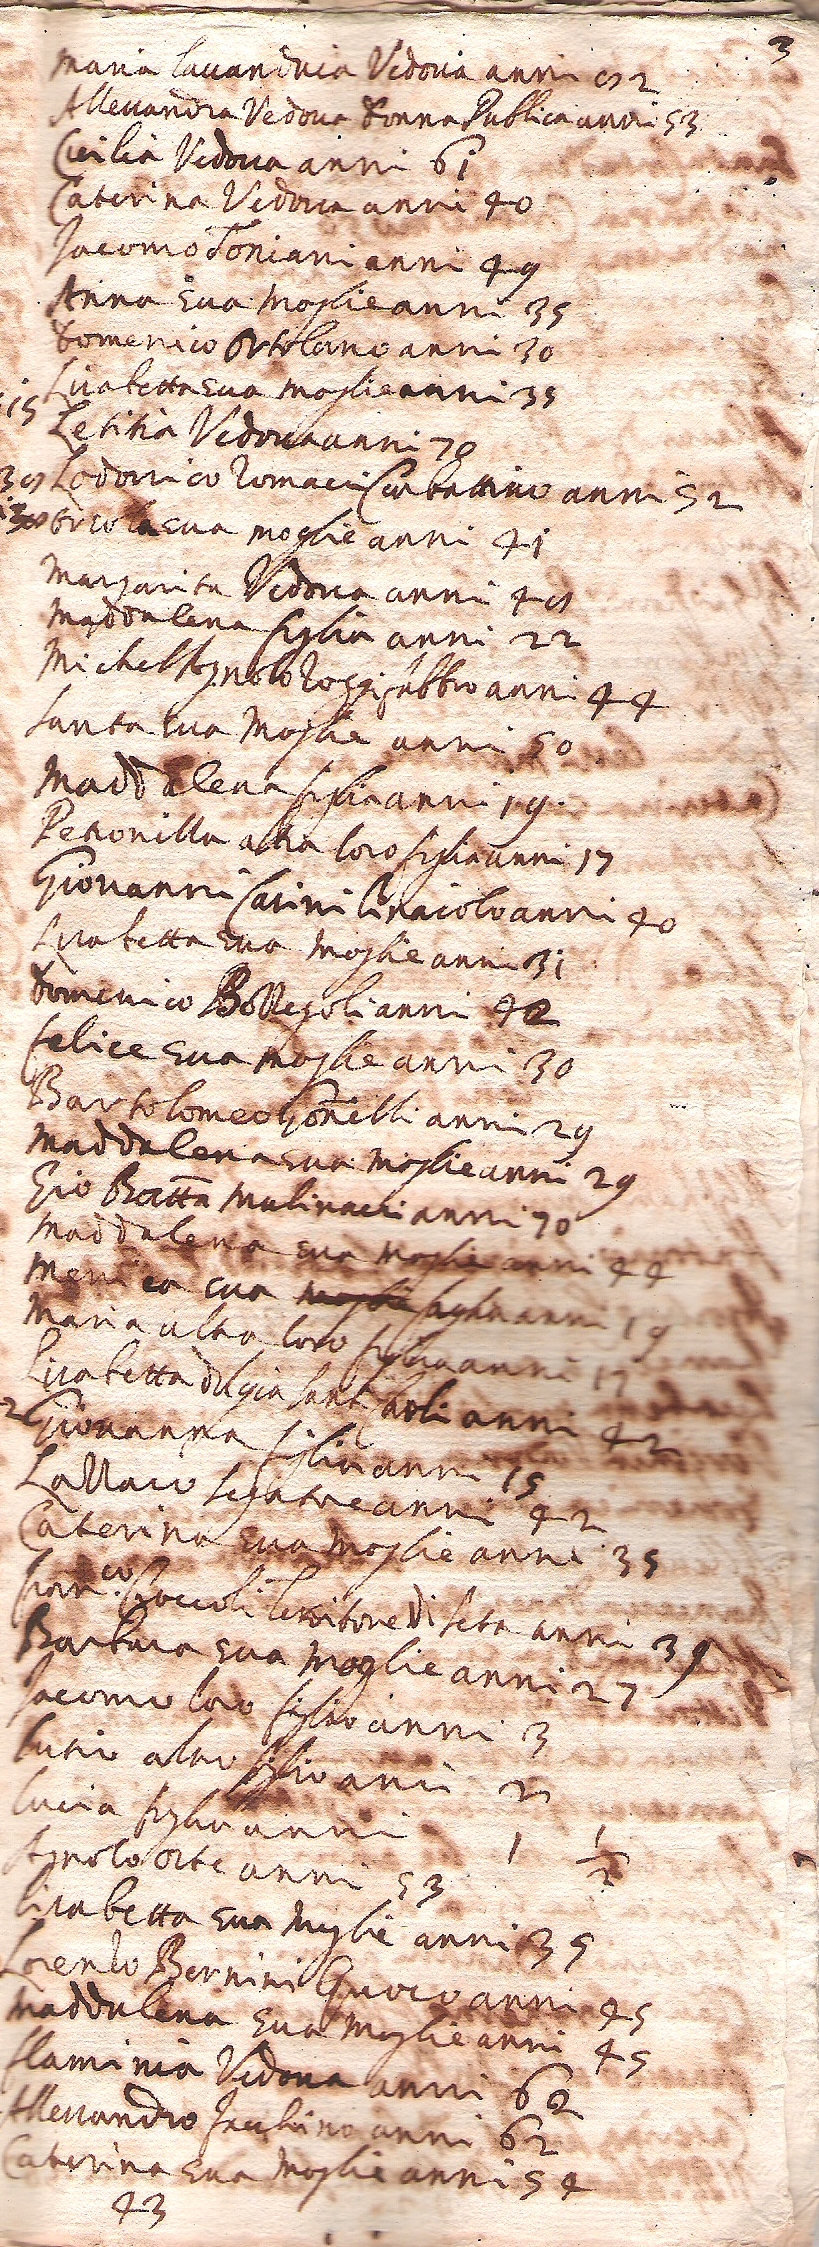 3
Maria lavandria Vedova anni 92
Allessandra Vedova donna Publica anni 53
Cicilia Vedova anni 61
Caterina Vedova anni 40
Jacomo Toniani anni 49
Anna sua moglie anni 35
Domenico Ortolano anni 30
Lisabetta sua moglie anni 35
15
Letitia Vedova anni 70
39 Lodovico Romacci Ciabattino anni 52
Orsola sua moglie anni 41
Margarita Vedova anni 49
Maddalena figlia anni 22
Michell Agnolo Roggi fabbro anni 44
Santa sua Moglie anni 50
Maddalena figlia anni 19
Petronilla altra loro figlia anni 17
Giovanni Carini linaiolo anni 40
Lisabetta sua Moglie anni 31
Domenico Bottegoli anni 42
felice sua moglie anni 30
Bartolomeo Gonelli anni 29
Maddalena sua moglie anni 29
Gio Batta Mulinacci anni 70
Maddalena sua moglie anni 44
Menica sua figlia anni 19
Maria altra loro figlia anni 17
Lisabetta anni 42
Giovanna figlia anni 15
Lazzaro segatore anni 42
Caterina sua Moglie anni 35
Franco. Ciaccoli tessitore di seta anni 39
Barbara sua Moglie anni 27
Jacomo loro figlio anni 3
altro figlio anni 2
Lucia figlia anni 1 1/2
Agnolo Orte anni 53
Lisabetta sua Moglie anni 35
Lorenzo Bernini Quoco anni 45
Maddalena sua Moglie anni 45
flaminia Vedova anni 62
Allessandro anni 62
Caterina sua Moglie anni 54
43